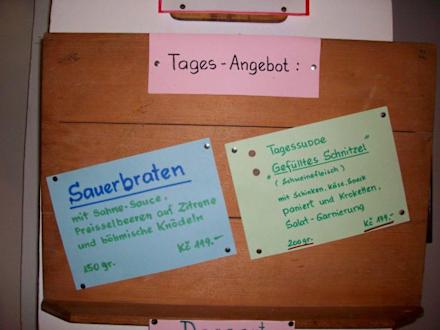 Tages-Angebot:
Sauerbraten
mit Sahne-Sauce,
Preisselbeeren auf Zitrone
und böhmische Knödeln
Kč 199.-
150 gr.
Tagessuppe
"Gefülltes Schnitzel"
(Schweinefleisch)
mit Schinken, Käse, Speck
paniert und Kroketten,
Salat-Garnierung
Kč 199.-
200 gr.